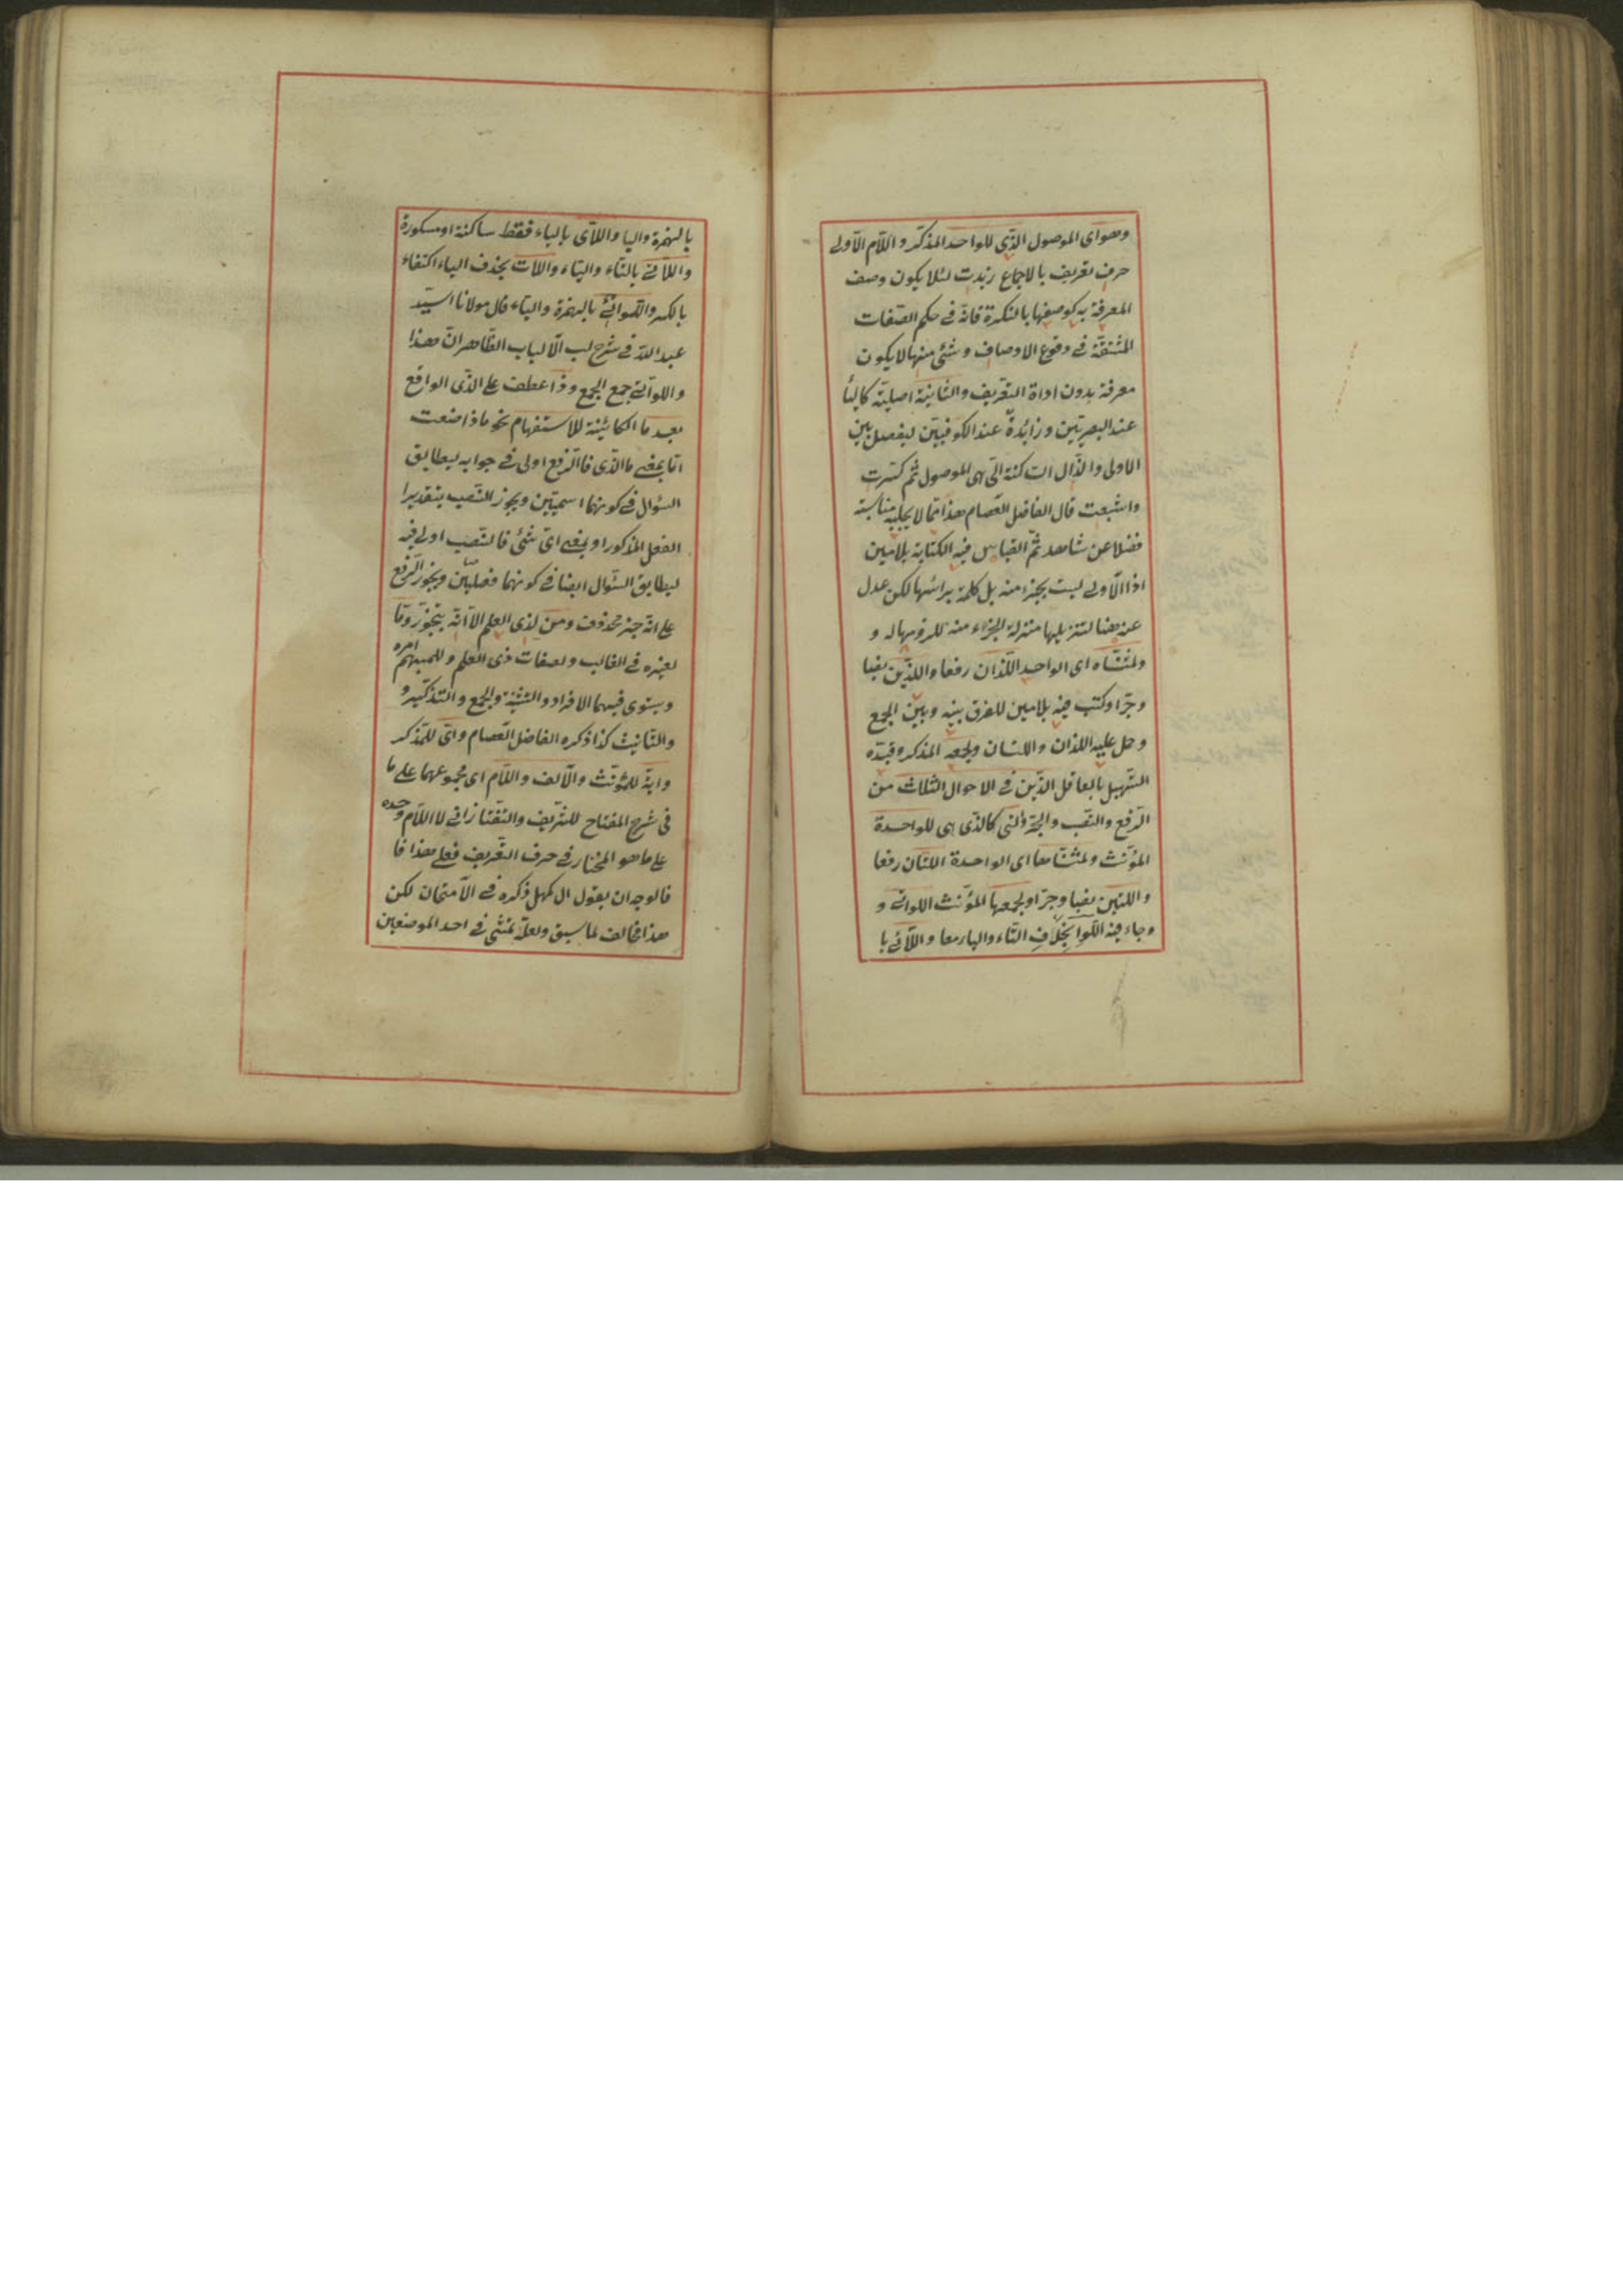 وهو اى الموصول الّذى للواحد المذكّر واللّام الاولى
حرف تعريف بالاجماع زيدت لئلا يكون وصف
المعرفة به كوصفها بالنكرة فانّه فى حكم الصّفات
المشتقّة فى وقوع الاوصاف وشئ منها لا يكون
معرفة بدون اداة التّعريف والثانية اصلية
عند البصريّين وزائدة عند الكوفيّين ليفصل بين
الاولى والذّال الساكنة الّتى هى الموصول ثمّ كسرت
واشبعت قال الفاضل العّصام هذا ممّا لا يجلبه مناسبة
فضلا عن شاهد ثمّ القياس فيه الكتابة بلامين
اذ الاولى ليست بجزء منه بل كلمة برأسها لكن عدل
عنه هنا لتنزيلها منزلة الجزء منه للزومها له و
ولمثنّاه اى الواحد اللّذان رفعا واللّذين نصبا
وجرّا وكتب فيه بلامين للفرق بينه وبين الجمع
وحمل عليه اللذان واللتان ولجمعه المذكر وقيّده
التّسهيل بالعاقل الّذين فى الاحوال الثلاث من
الرّفع والنّصب والجرّ والّتى كالّذى هى للواحدة
المؤنّث ولمثنّاها اى الواحدة اللتان رفعا
واللتين نصبا وجرّا ولجمعها المؤنّث اللواتى و
وجاء فيه اللّوا بحذف التّاء والياء معا واللّائى با
بالهمزة واليا واللّاى بالياء فقط ساكنة او مسكورة
واللّاتى بالتّاء والياء واللّات بحذف الياء اكتفاء
بالكسر واللّوائى بالهمزة والياء قال مولانا السيّد
عبد اللّه فى شرح لب الالباب الظّاهر انّ هذا
واللّواتى جمع الجمع وذا عطف على الّذى الواقع
بعد ما الكائنة للاستفهام نحو ماذا صنعت
امّا بمعنى ما الّذى فالرّفع اولى فى جوابه ليطابق
السّؤال فى كونهما اسميّتين ويجوز النّصب بتقدير
الفعل المذكور او بمعنى اىّ شئ فالنّصب اولى فيه
ليطابق السّؤال ايضا فى كونهما فعليّتين ويجوز الرّفع
على انّه خبر محذوف ومن لذى العلم الّا انّه يتجوّز وما
لغيره فى الغالب ولصفات ذى العلم وللمبهم امره
ويستوى فيهما الافراد والتثنية والجمع والتّذكير و
والتّانيث كذا ذكره الفاضل العّصام واىّ للمذكر
وايّة للمؤنّث والالف واللّام اى مجموعهما على ما
فى شرح المفتاح للشريف والتّفتازانى لا اللّام وحده
على ما هو المختار فى حرف التّعريف فعلى هذا فا
فالوجه ان يقول ال كهل ذكره فى الامتحان لكن
هذا مخالف لما سبق ولعلّه تمشّى فى احد الموضعين